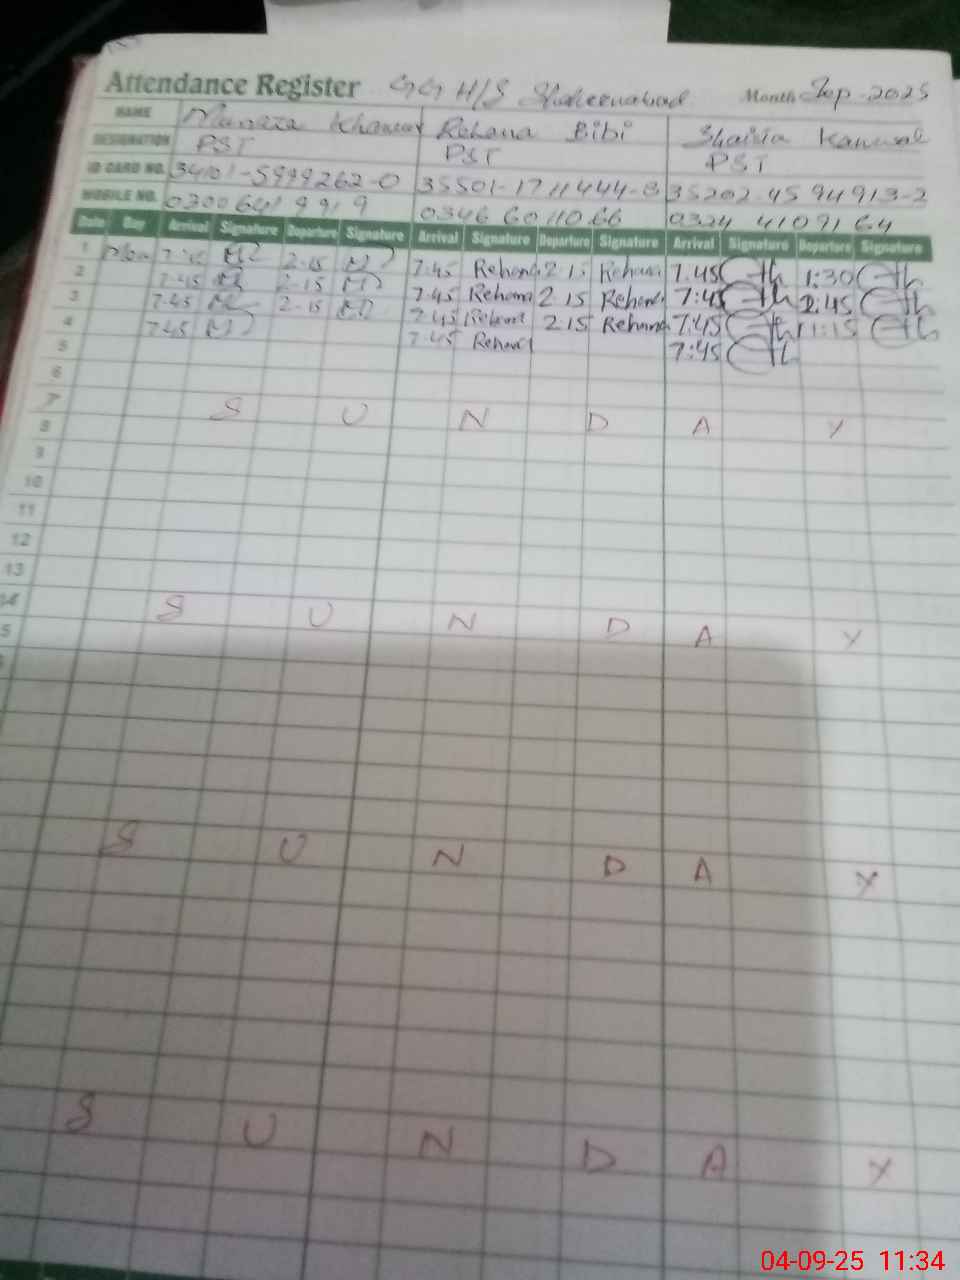 Attendance Register GGH/S Shaheenabad Month Sep-2025
NAME Khanum Rehana Bibi Shaista Kanwal
DESIGNATION PST PST PST
ID CARD NO. 34101-5999262-0 35501-1711444-8 35202-4594913-2
MOBILE NO. 03006419919 03466011066 0324 4109164
Date Day Arrival Signature Departure Signature Arrival Signature Departure Signature Arrival Signature Departure Signature
1 Mon 7:45 2-15 7:45 Rehana 2.15 Rehana 7.45 1:30
2 7.45 2-15 7.45 Rehana 2.15 Rehana 7:45 2:45
3 7.45 2-15 7.45 Rehana 2.15 Rehana 7:45 11:15
4 7.45 7.45 Rehana 7:45
5
6
7 S U N D A Y
8
9
10
11
12
13
14 S U N D A Y
5
S U N D A Y
S U N D A Y
04-09-25 11:34